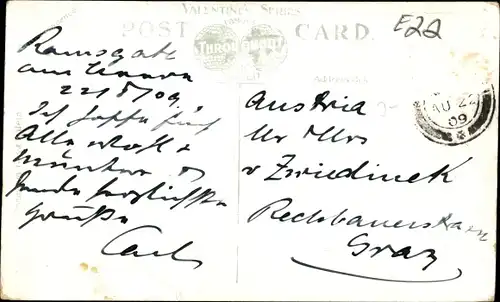 VALENTINE'S SERIES
POST CARD.
E22
Ramsgate
22/8/09.
Ich hoffe
Alle wohl &
munter &
sende herzlichste
Grüße
Carl
AU 22
09
Austria
Mr Mrs
v Zwiedinek
Rechbauerstrasse
Graz